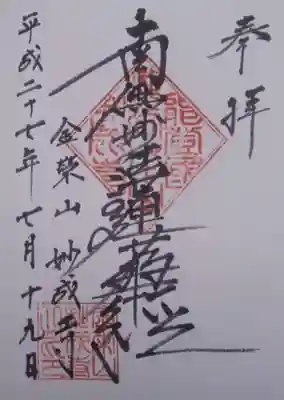 奉拝
南無妙法蓮華経
金榮山妙成寺
平成二十七年七月十九日